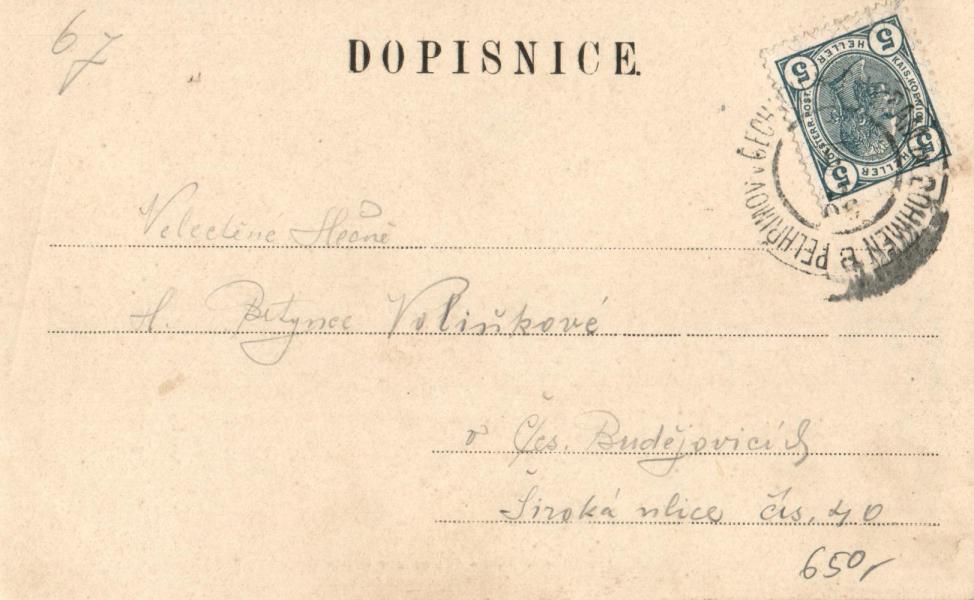 67
DOPISNICE.
5 HELLER 5
KAIS. KÖNIGL. OESTERR. POST.
5 HELLER 5
PELHŘIMOV v ČECH.
BÖHMEN
B
Velectěné Slečně
sl. Betynce Voliňkové
v Čes. Budějovicích
Široká ulice čís. 40
650,